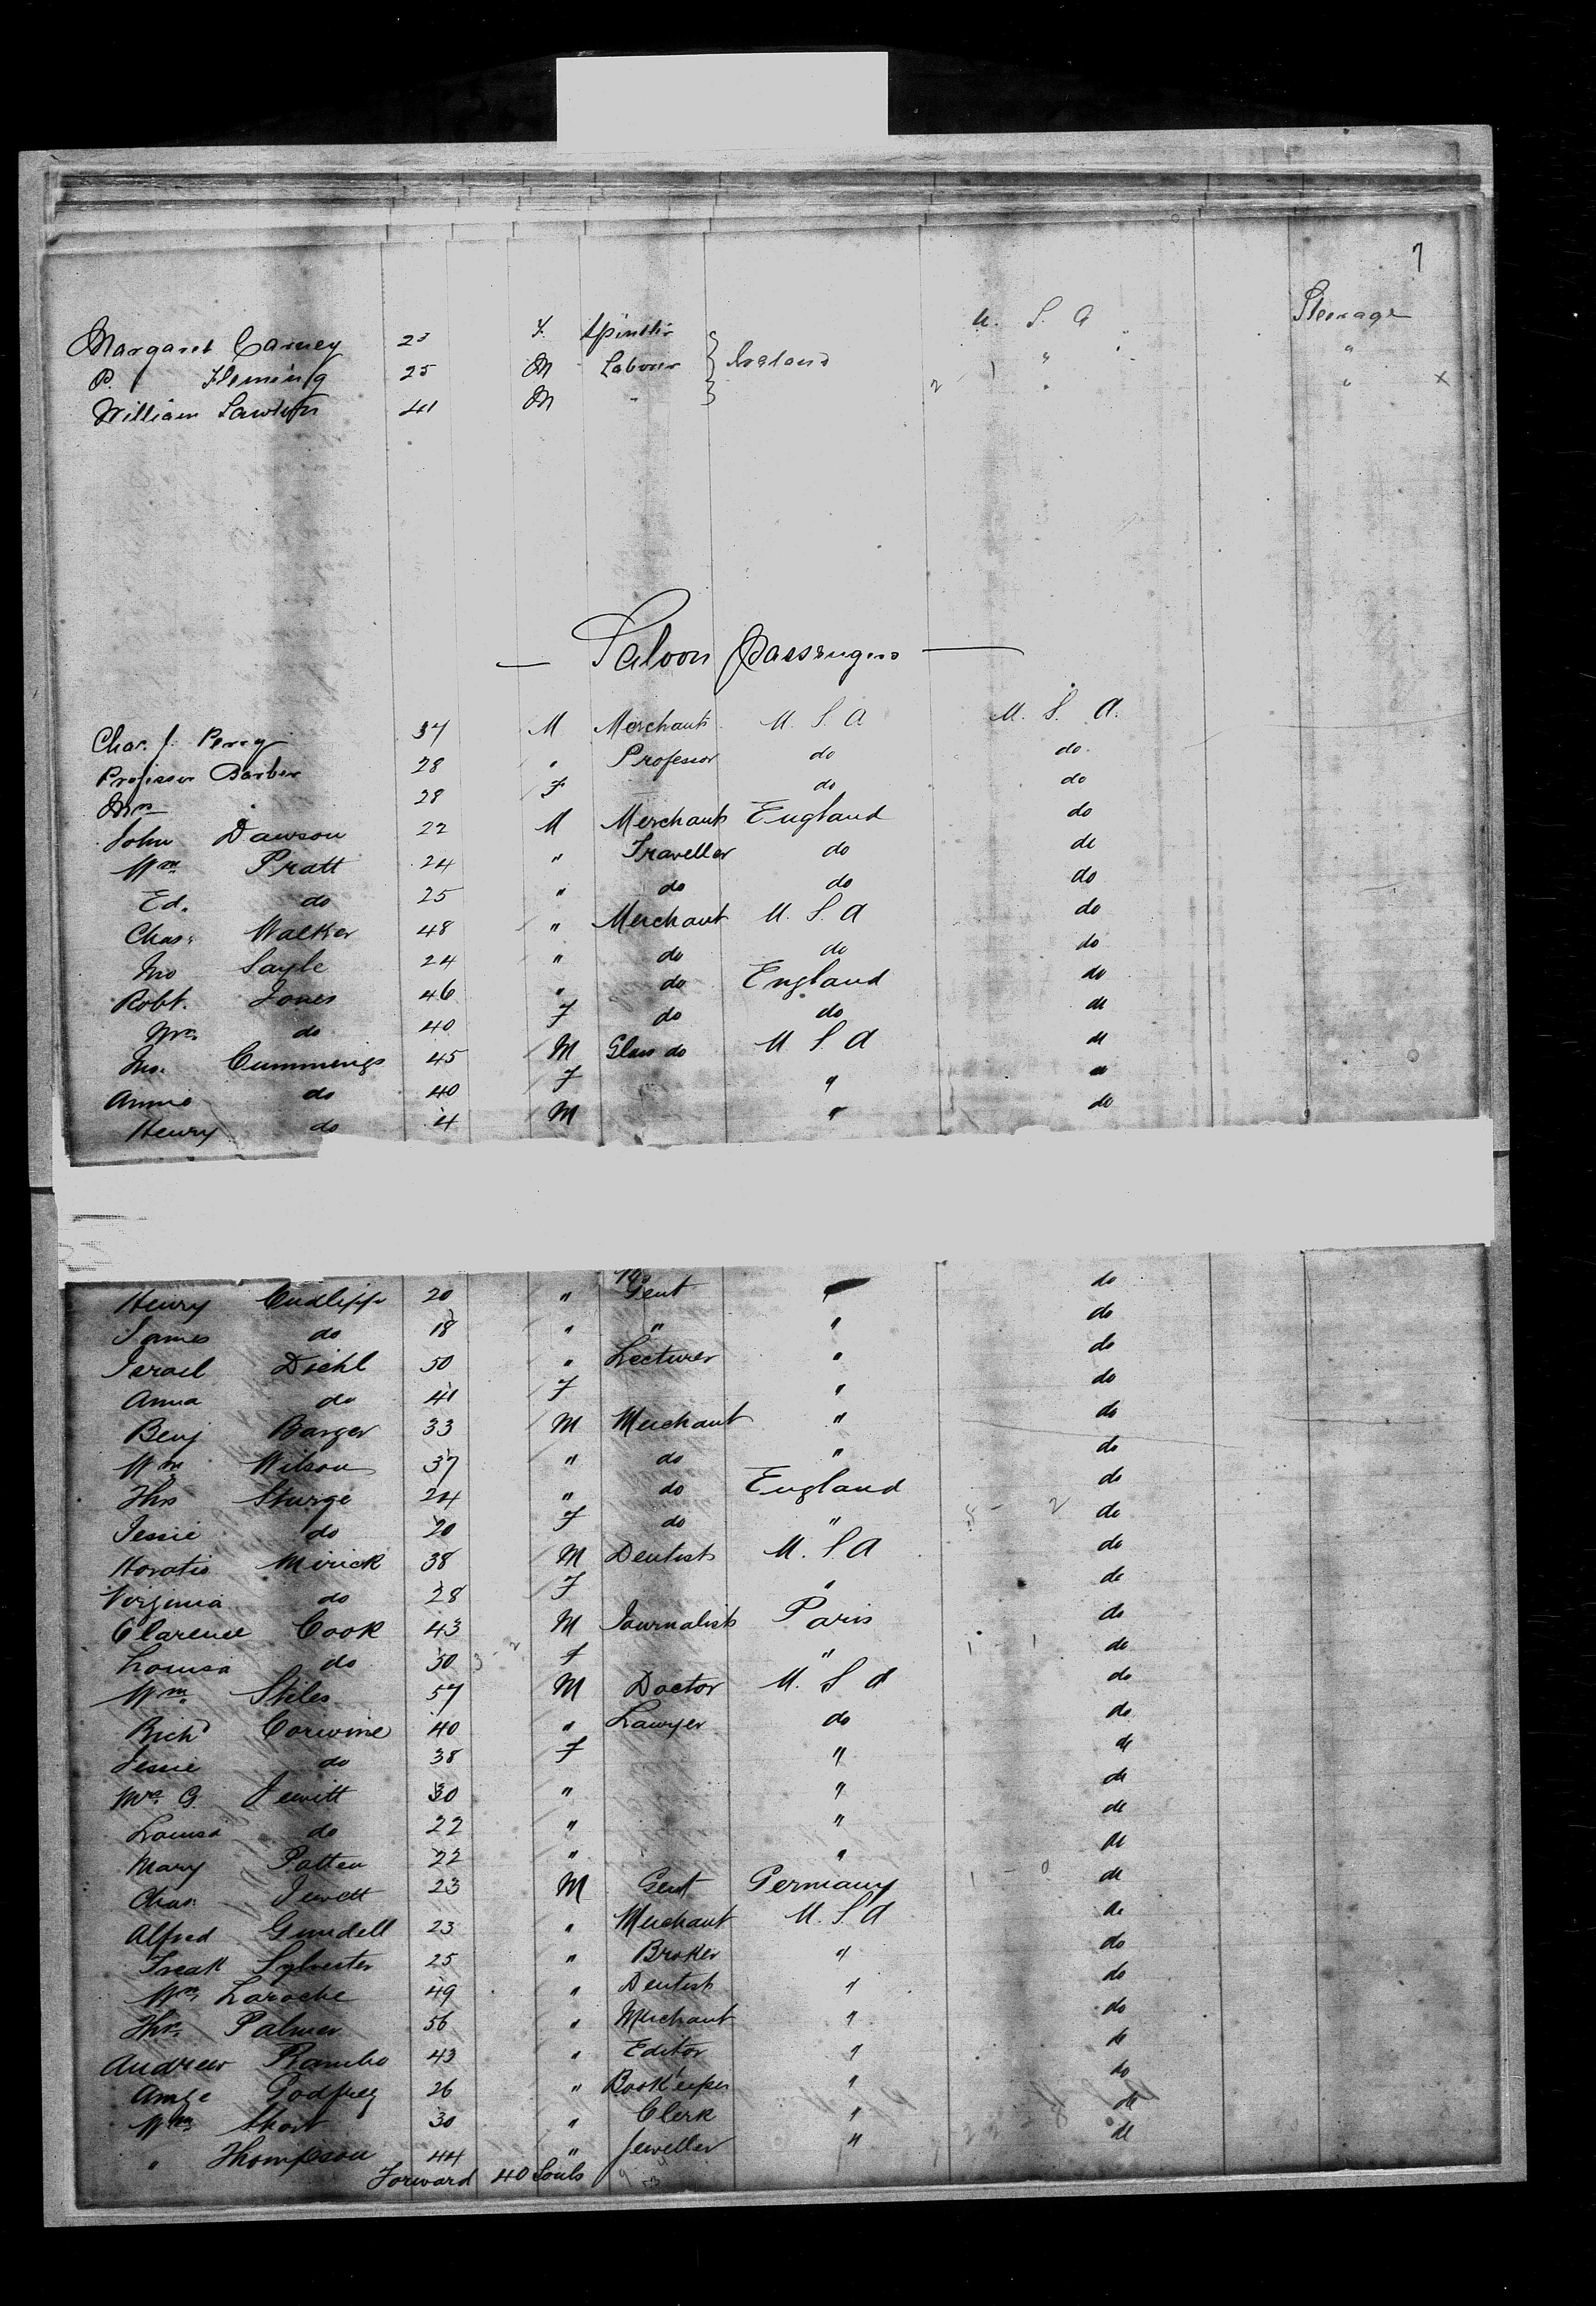 7
Margaret Carney 23 F. Spinster U. S. A Steerage
P. Fleming 25 M Labour } Ireland " "
William Lawton 41 M " " " X
— Saloon Passengers —
Chas. J. Perry 37 M Merchant U. S. A U. S. A.
Professor Barber 28 " Professor do do
Mrs " 28 F do do
John Dawson 22 M Merchant England do
Wm Pratt 24 " Traveller do do
Ed. do 25 " do do do
Chas. Walker 48 " Merchant U. S. A do
Jno Sayle 24 " do do do
Robt. Jones 46 " do England do
Mrs do 40 F do do do
Jno. Cummings 45 M Glass do U. S. A do
Annie do 40 F " do
Henry do 4 M " do
Henry Cudlipp 20 " Gent " do
James do 18 " " " do
Israel Diehl 50 " Lecturer " do
Anna do 41 F " do
Benj Barger 33 M Merchant " do
Wm Wilson 37 " do " do
Thos Sturge 24 " do England do
Jessie do 20 F do " do
Horatio Mirick 38 M Dentist U. S. A do
Virginia do 28 F " do
Clarence Cook 43 M Journalist Paris do
Louisa do 50 F " do
Wm Stiles 57 M Doctor U. S. A do
Richd Corwine 40 " Lawyer do do
Jessie do 38 F " do
Mrs G. Jewitt 30 " " do
Louisa do 22 " " do
Mary Patten 22 " " do
Chas. Jewett 23 M Gent Germany do
Alfred Gundell 23 " Merchant U. S. A do
Freak Sylvester 25 " Broker " do
Wm Laroche 49 " Dentist " do
Thos. Palmer 56 " Merchant " do
Andrew Rambo 43 " Editor " do
Godfrey 26 " Book'eeper " do
Wm Short 30 " Clerk " do
" Thompson 44 " Jeweller " do
Forward 40 Souls